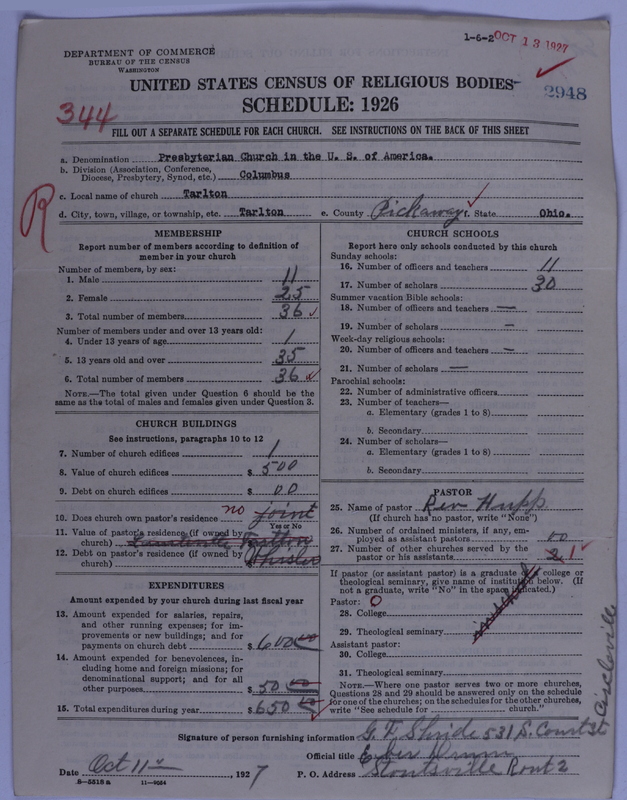 1-6-2 OCT 13 1927
DEPARTMENT OF COMMERCE
BUREAU OF THE CENSUS
WASHINGTON
UNITED STATES CENSUS OF RELIGIOUS BODIES
2948
SCHEDULE: 1926
344
FILL OUT A SEPARATE SCHEDULE FOR EACH CHURCH. SEE INSTRUCTIONS ON THE BACK OF THIS SHEET
a. Denomination Presbyterian Church in the U. S. of America.
b. Division (Association, Conference,
Diocese, Presbytery, Synod, etc.) Columbus
c. Local name of church Tarlton
R
d. City, town, village, or township, etc. Tarlton e. County Pickaway f. State Ohio.
MEMBERSHIP
Report number of members according to definition of
member in your church
Number of members, by sex:
1. Male 11
2. Female 25
3. Total number of members 36
Number of members under and over 13 years old:
4. Under 13 years of age 1
5. 13 years old and over 35
6. Total number of members 36
NOTE.—The total given under Question 6 should be
the same as the total of males and females given under Question 3.
CHURCH BUILDINGS
See instructions, paragraphs 10 to 12
7. Number of church edifices 1
8. Value of church edifices $ 500
9. Debt on church edifices $ 00
10. Does church own pastor's residence no joint
Yes or No
11. Value of pastor's residence (if owned by
church)
12. Debt on pastor's residence (if owned by
church)
EXPENDITURES
Amount expended by your church during last fiscal year
13. Amount expended for salaries, repairs,
and other running expenses; for im-
provements or new buildings; and for
payments on church debt $ 600 00
14. Amount expended for benevolences, in-
cluding home and foreign missions; for
denominational support; and for all
other purposes $ 50 00
15. Total expenditures during year $ 650 00
CHURCH SCHOOLS
Report here only schools conducted by this church
Sunday schools:
16. Number of officers and teachers 11
17. Number of scholars 30
Summer vacation Bible schools:
18. Number of officers and teachers —
19. Number of scholars —
Week-day religious schools:
20. Number of officers and teachers —
21. Number of scholars —
Parochial schools:
22. Number of administrative officers
23. Number of teachers—
a. Elementary (grades 1 to 8)
b. Secondary
24. Number of scholars—
a. Elementary (grades 1 to 8)
b. Secondary
PASTOR
25. Name of pastor Rev Hupp
(If church has no pastor, write "None")
26. Number of ordained ministers, if any, em-
ployed as assistant pastors 00
27. Number of other churches served by the
pastor or his assistants 2 1
If pastor (or assistant pastor) is a graduate of college or
theological seminary, give name of institution below. (If
not a graduate, write "No" in the space indicated.)
Pastor: O
28. College
29. Theological seminary
Assistant pastor:
30. College
31. Theological seminary
NOTE.—Where one pastor serves two or more churches,
Questions 28 and 29 should be answered only on the schedule
for one of the churches; on the schedules for the other churches,
write "See schedule for church."
Signature of person furnishing information G. F. Shride 531 S. Court st
Circleville
Official title
Date Oct 11, 1927 P. O. Address Stoutsville Rout 2
8-5518 a 11-9084